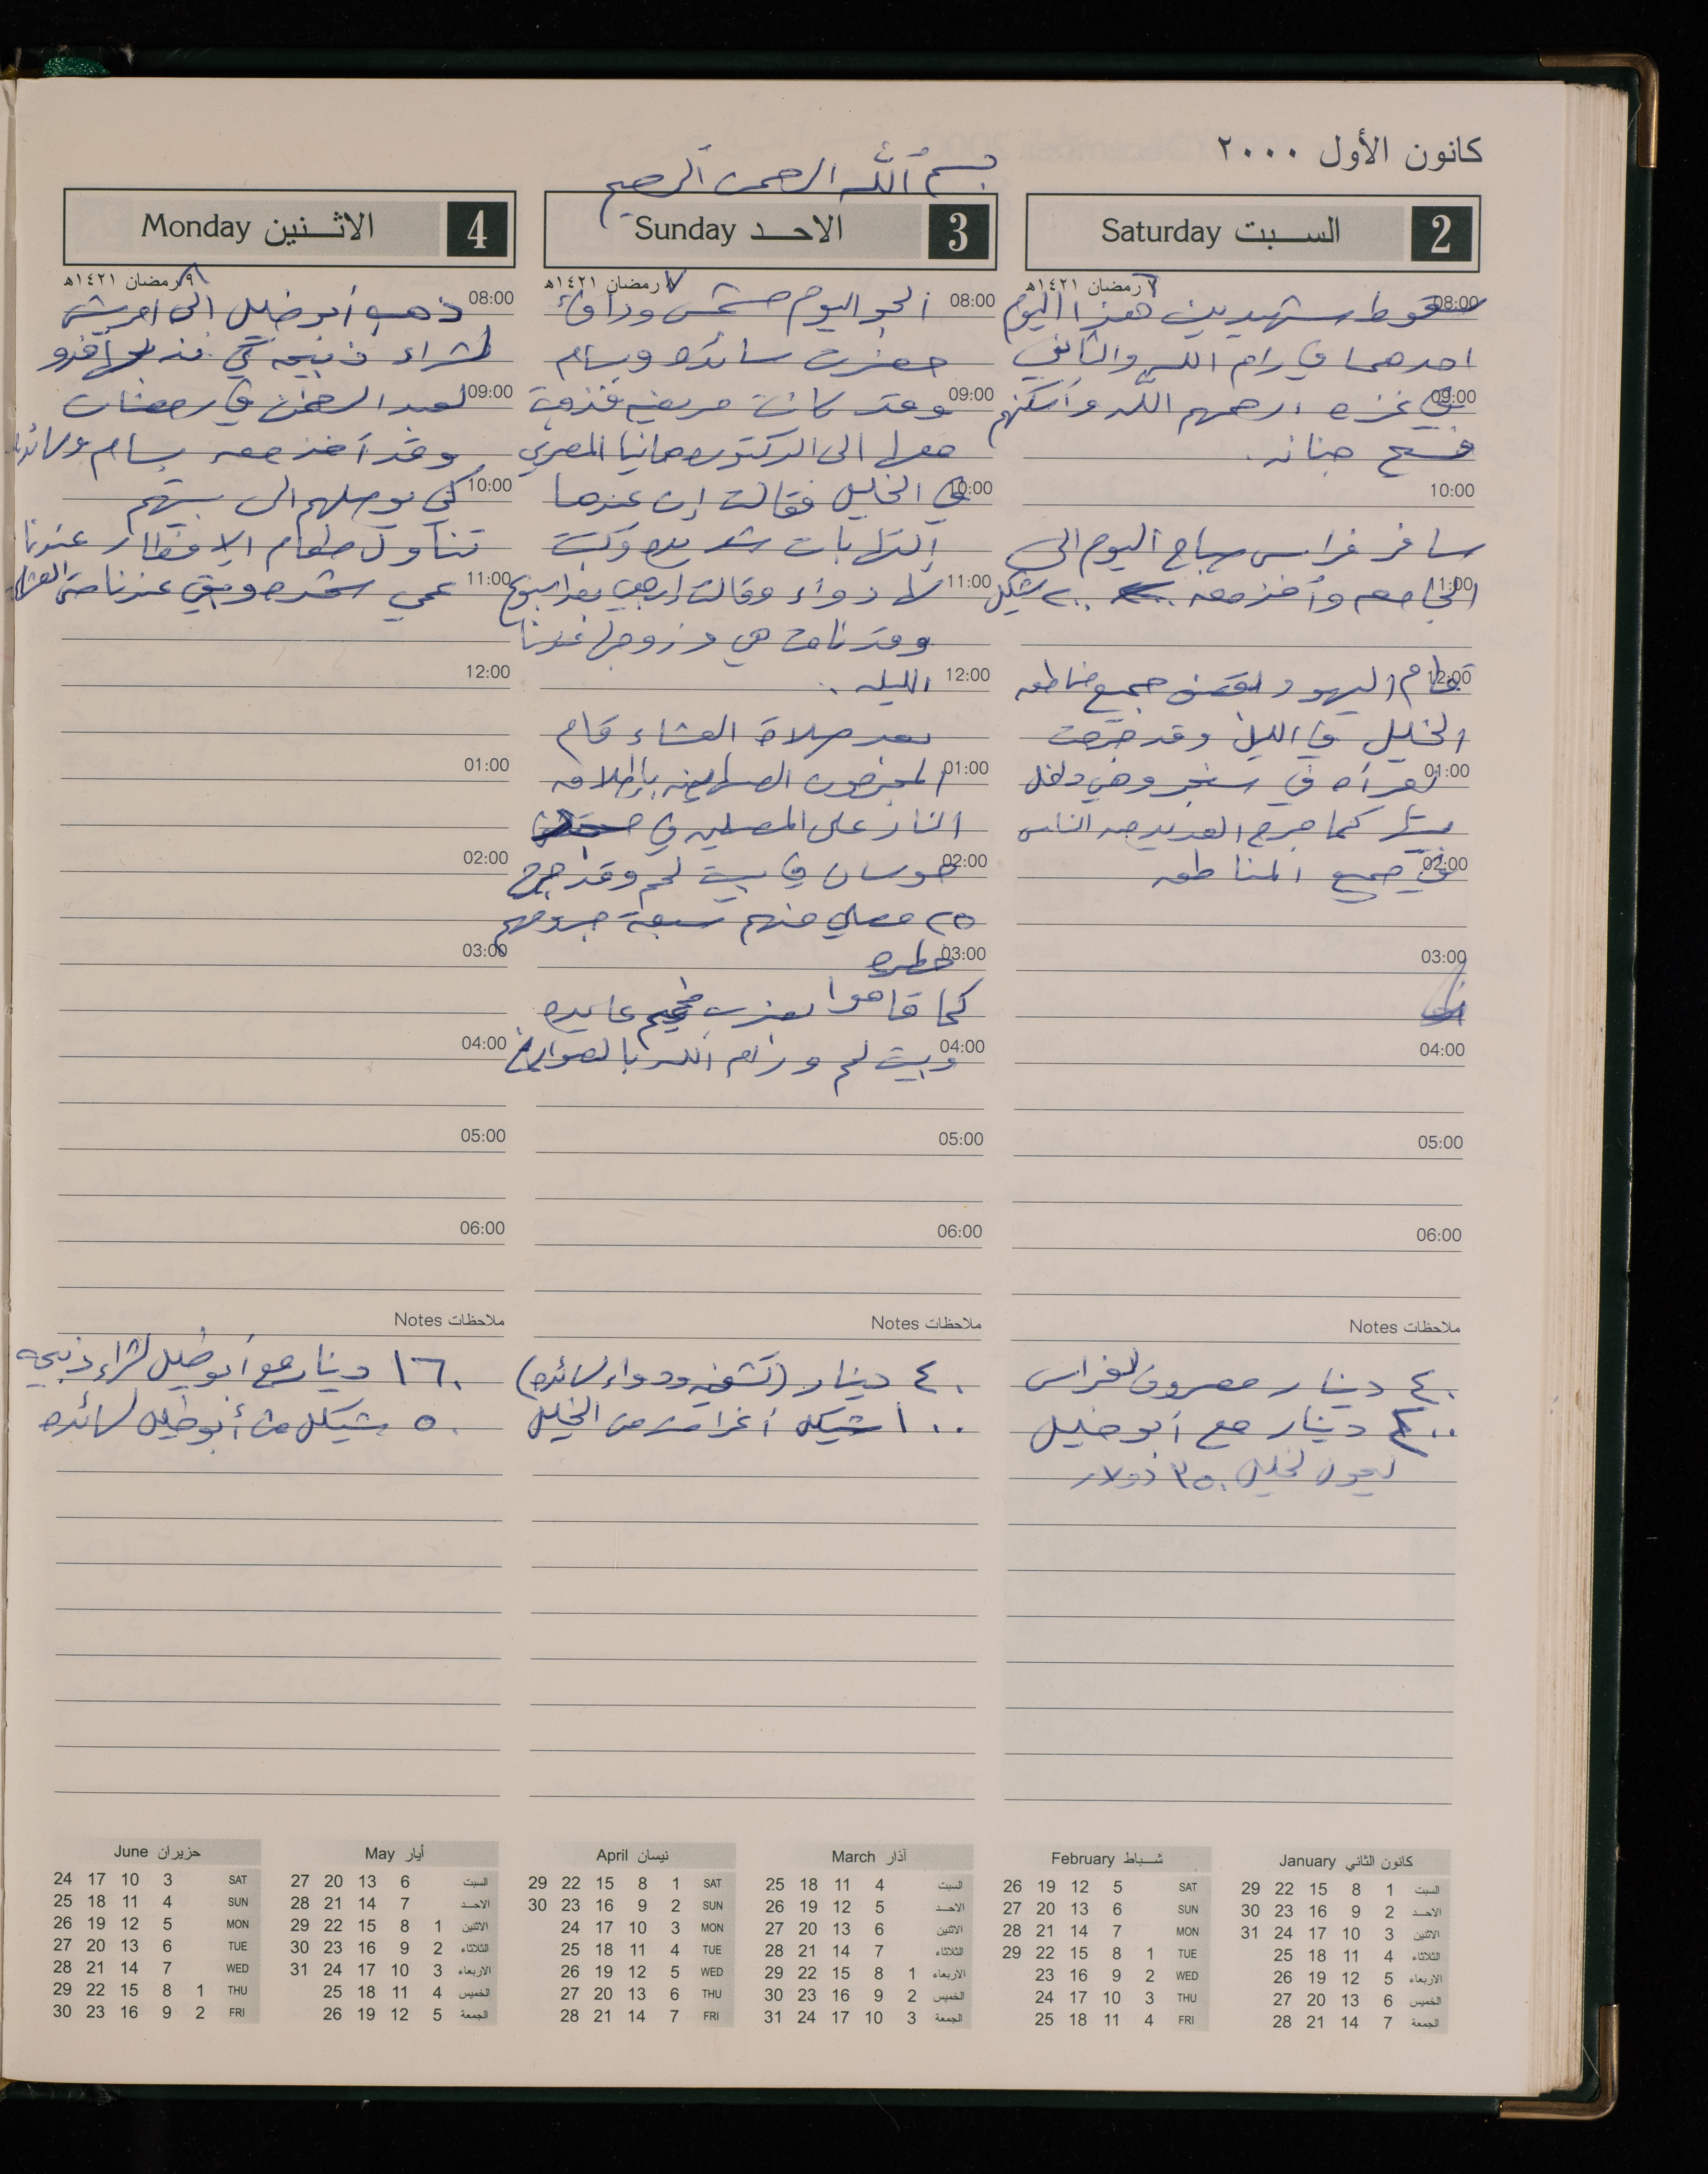 كانون الأول ٢٠٠٠
بسم الله الرحمن الرحيم
2 السبت Saturday
٦ رمضان ١٤٢١هـ
08:00
سقوط شهيدين هذا اليوم
احدهما في رام الله والثاني
09:00
في غزه ارحمهم الله وأسكنهم
فسيح جنانه.
10:00
سافر فراس صباح اليوم الى
11:00
الجامعه وأخذ معه ٢٠٠ شيكل
12:00
قام اليهود بقصف جميع مناطق
الخليل في الليل وقد جرحت
01:00
إمرأه في سنجر وهي داخل
بيتها كما جرح العديد من الناس
02:00
في جميع المناطق
03:00
04:00
05:00
06:00
ملاحظات Notes
٤٠ دينار مصروف لفراس
٣٠٠ دينار مع أبو خليل
ليحول لخليل ٣٥٠ دولار
3 الاحد Sunday
٧ رمضان ١٤٢١هـ
08:00
الجو اليوم مشمس ودافئ
حضرت سائده وبسام
09:00
وقد كانت مريضه فذهبت
معها الى الدكتوره مانيا المصري
10:00
في الخليل فقالت إن عندها
إلتهابات شديده وكتبت
11:00
لها دواء وقالت إرجعي بعد اسبوع
وقد نامت هي وزوجها عندنا
12:00
الليله.
بعد صلاة العشاء قام
01:00
المجرمون الصهاينه بإطلاق
النار على المصلين في
02:00
حوسان في بيت لحم وقد جرح
٢٥ مصلي منهم سبعة جروحهم
03:00
خطره
كما قاموا بضرب مخيم عايده
04:00
وبيت لحم ورام الله بالصواريخ
05:00
06:00
ملاحظات Notes
٤٠ دينار (كشفيه ودواء لسائده)
١٠٠ شيكل أغراض من الخليل
4 الاثنين Monday
٨ رمضان ١٤٢١هـ
08:00
ذهب أبو خليل الى امريش
لشراء ذبيحه كي نذبحها فدو
09:00
لعبد الرحمن في رمضان
وقد أخذ معه بسام وسائده
10:00
كي يوصلهم الى بيتهم
تناول طعام الإفطار عندنا
11:00
عمي شحده وبقي عندنا حتى العشاء
12:00
01:00
02:00
03:00
04:00
05:00
06:00
ملاحظات Notes
١٦٠ دينار مع أبو خليل لشراء ذبيحه
٥٠ شيكل من أبو خليل لسائده
كانون الثاني January
السبت 1 8 15 22 29
الاحد 2 9 16 23 30
الاثنين 3 10 17 24 31
الثلاثاء 4 11 18 25
الاربعاء 5 12 19 26
الخميس 6 13 20 27
الجمعة 7 14 21 28
شباط February
SAT 5 12 19 26
SUN 6 13 20 27
MON 7 14 21 28
TUE 1 8 15 22 29
WED 2 9 16 23
THU 3 10 17 24
FRI 4 11 18 25
آذار March
السبت 4 11 18 25
الاحد 5 12 19 26
الاثنين 6 13 20 27
الثلاثاء 7 14 21 28
الاربعاء 1 8 15 22 29
الخميس 2 9 16 23 30
الجمعة 3 10 17 24 31
نيسان April
SAT 1 8 15 22 29
SUN 2 9 16 23 30
MON 3 10 17 24
TUE 4 11 18 25
WED 5 12 19 26
THU 6 13 20 27
FRI 7 14 21 28
أيار May
السبت 6 13 20 27
الاحد 7 14 21 28
الاثنين 1 8 15 22 29
الثلاثاء 2 9 16 23 30
الاربعاء 3 10 17 24 31
الخميس 4 11 18 25
الجمعة 5 12 19 26
حزيران June
SAT 3 10 17 24
SUN 4 11 18 25
MON 5 12 19 26
TUE 6 13 20 27
WED 7 14 21 28
THU 1 8 15 22 29
FRI 2 9 16 23 30